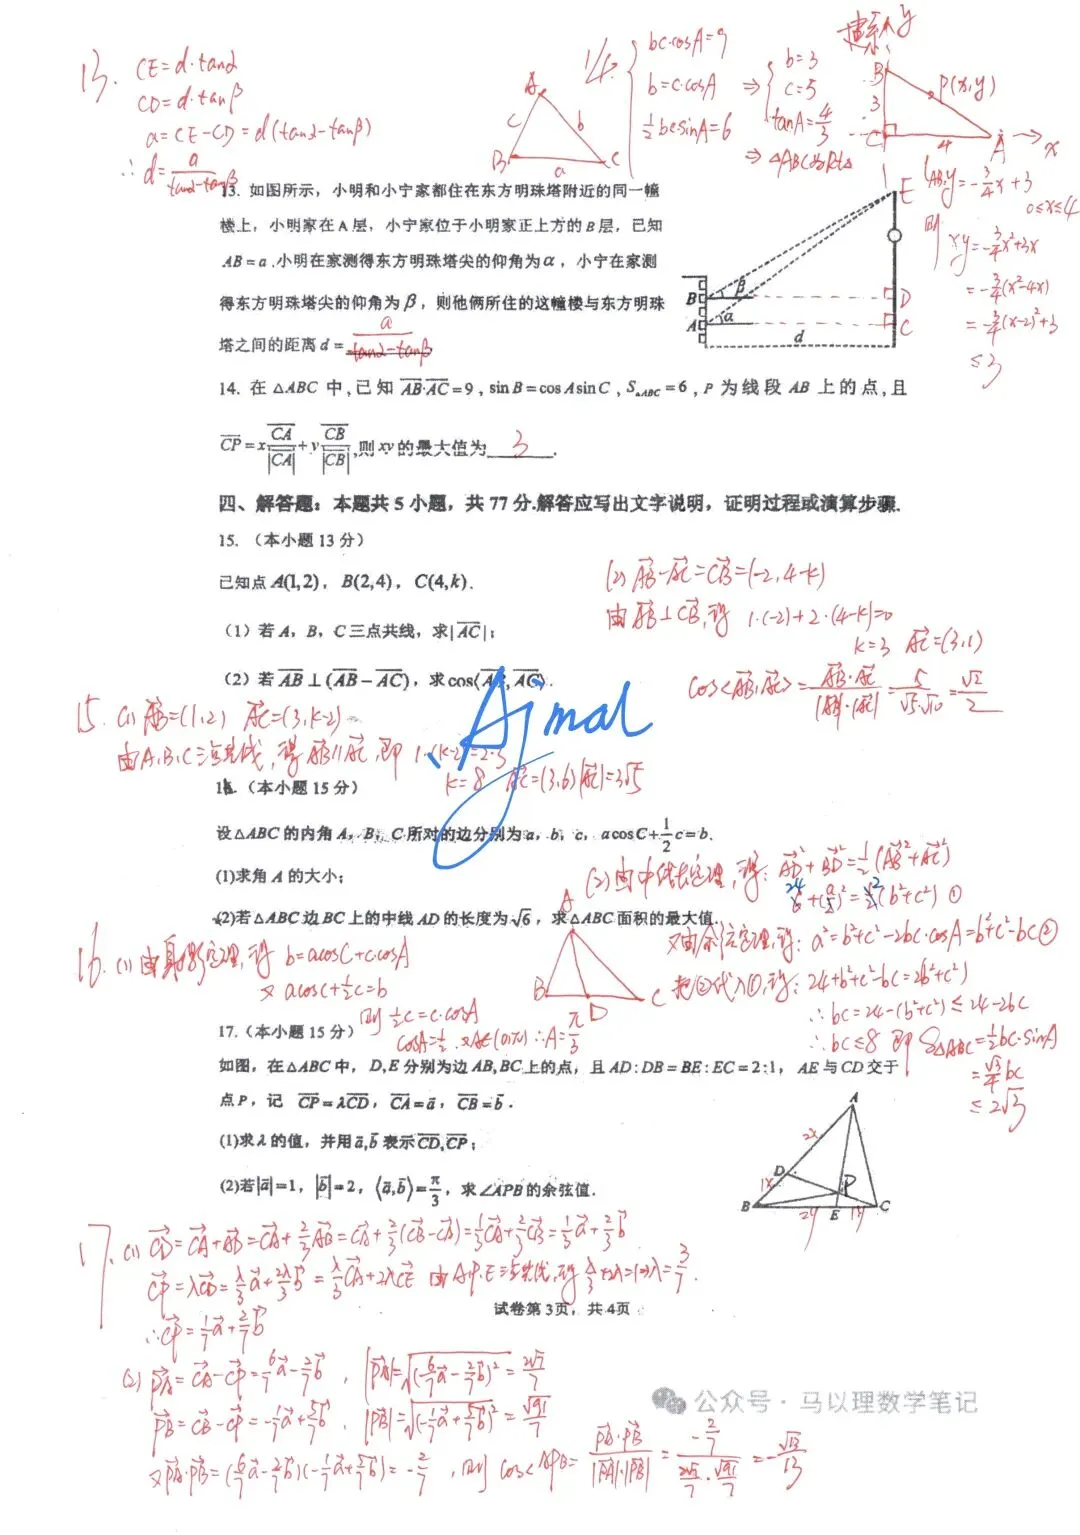 13. CE=d·tanα
CD=d·tanβ
a=CE-CD=d(tanα-tanβ)
∴d=a/(tanα-tanβ)
A
c b
B a C
14. bc·cosA=9
b=c·cosA
1/2 bc·sinA=6
⇒ b=3
c=5
tanA=4/3
⇒△ABC为Rt△
建系 y
B
P(x,y)
3
C 4 A x
l AB: y=-3/4x+3
0≤x≤4
则 xy=-3/4x²+3x
=-3/4(x²-4x)
=-3/4(x-2)²+3
≤3
13. 如图所示，小明和小宁家都住在东方明珠塔附近的同一幢
楼上，小明家在 A 层，小宁家位于小明家正上方的 B 层，已知
AB=a.小明在家测得东方明珠塔尖的仰角为α，小宁在家测
得东方明珠塔尖的仰角为β，则他俩所住的这幢楼与东方明珠
塔之间的距离 d= a/(tanα-tanβ)
E
B β D
A α C
d
14. 在 △ABC 中,已知 AB·AC=9,sin B=cos A sin C,S△ABC=6,P 为线段 AB 上的点,且
CP=x CA/|CA|+y CB/|CB|,则 xy 的最大值为 3 .
四、解答题：本题共 5 小题，共 77 分.解答应写出文字说明，证明过程或演算步骤.
15. （本小题 13 分）
已知点 A(1,2)，B(2,4)，C(4,k).
（1）若 A，B，C 三点共线，求|AC|；
（2）若 AB⊥(AB-AC)，求cos⟨AB,AC⟩.
(2) AB-AC=CB=(-2,4-k)
由AB⊥CB,得 1·(-2)+2·(4-k)=0
k=3 AC=(3,1)
cos<AB,AC>=AB·AC/|AB|·|AC|=5/√5·√10=√2/2
15. (1) AB=(1,2) AC=(3,k-2)
由A,B,C三点共线,得AB∥AC,即 1·(k-2)=2·3
k=8 AC=(3,6) |AC|=3√5
Ajmal
16.（本小题 15 分）
设△ABC 的内角 A，B，C 所对的边分别为 a，b，c，a cos C+1/2 c=b.
(1)求角 A 的大小；
(2)若△ABC 边 BC 上的中线 AD 的长度为√6，求△ABC 面积的最大值.
(2)由中线长定理,得: AD²+BD²=1/2(AB²+AC²)
(b²+c²) ①
又由余弦定理,得: a²=b²+c²-2bc·cosA=b²+c²-bc②
把②代入①,得: 24+b²+c²-bc=2(b²+c²)
∴bc=24-(b²+c²)≤24-2bc
∴bc≤8 即 S△ABC=1/2bc·sinA
=√3/4bc
≤2√3
A
B D C
16. (1)由射影定理,得 b=acosC+c·cosA
又 acosC+1/2c=b
则 1/2c=c·cosA
cosA=1/2, 又A∈(0,π) ∴A=π/3
17.（本小题 15 分）
如图，在△ABC 中，D,E 分别为边 AB,BC 上的点，且 AD:DB=BE:EC=2:1，AE 与 CD 交于
点 P，记 CP=λCD，CA=a，CB=b.
(1)求λ的值，并用a,b表示CD,CP；
(2)若|a|=1，|b|=2，⟨a,b⟩=π/3，求∠APB 的余弦值.
A
2x
D
1x P
B 2y E 1y C
17. (1) CD=CA+AD=CA+2/3AB=CA+2/3(CB-CA)=1/3CA+2/3CB=1/3a+2/3b
CP=λCD=λ/3a+2λ/3b=λ/3CA+2λCE 由A,P,E三点共线,得λ/3+2λ=1⇒λ=3/7.
∴CP=1/7a+2/7b
试卷第 3页，共 4页
(2) PA=CA-CP=6/7a-2/7b, |PA|=√(6/7a-2/7b)²=2√7/7
PB=CB-CP=-1/7a+5/7b, |PB|=√(-1/7a+5/7b)²=√91/7
又PA·PB=(6/7a-2/7b)(-1/7a+5/7b)=-2/7, 则 cos∠APB=PA·PB/|PA|·|PB|=(-2/7)/(2√7/7·√91/7)=-√13/13
公众号·马以理数学笔记